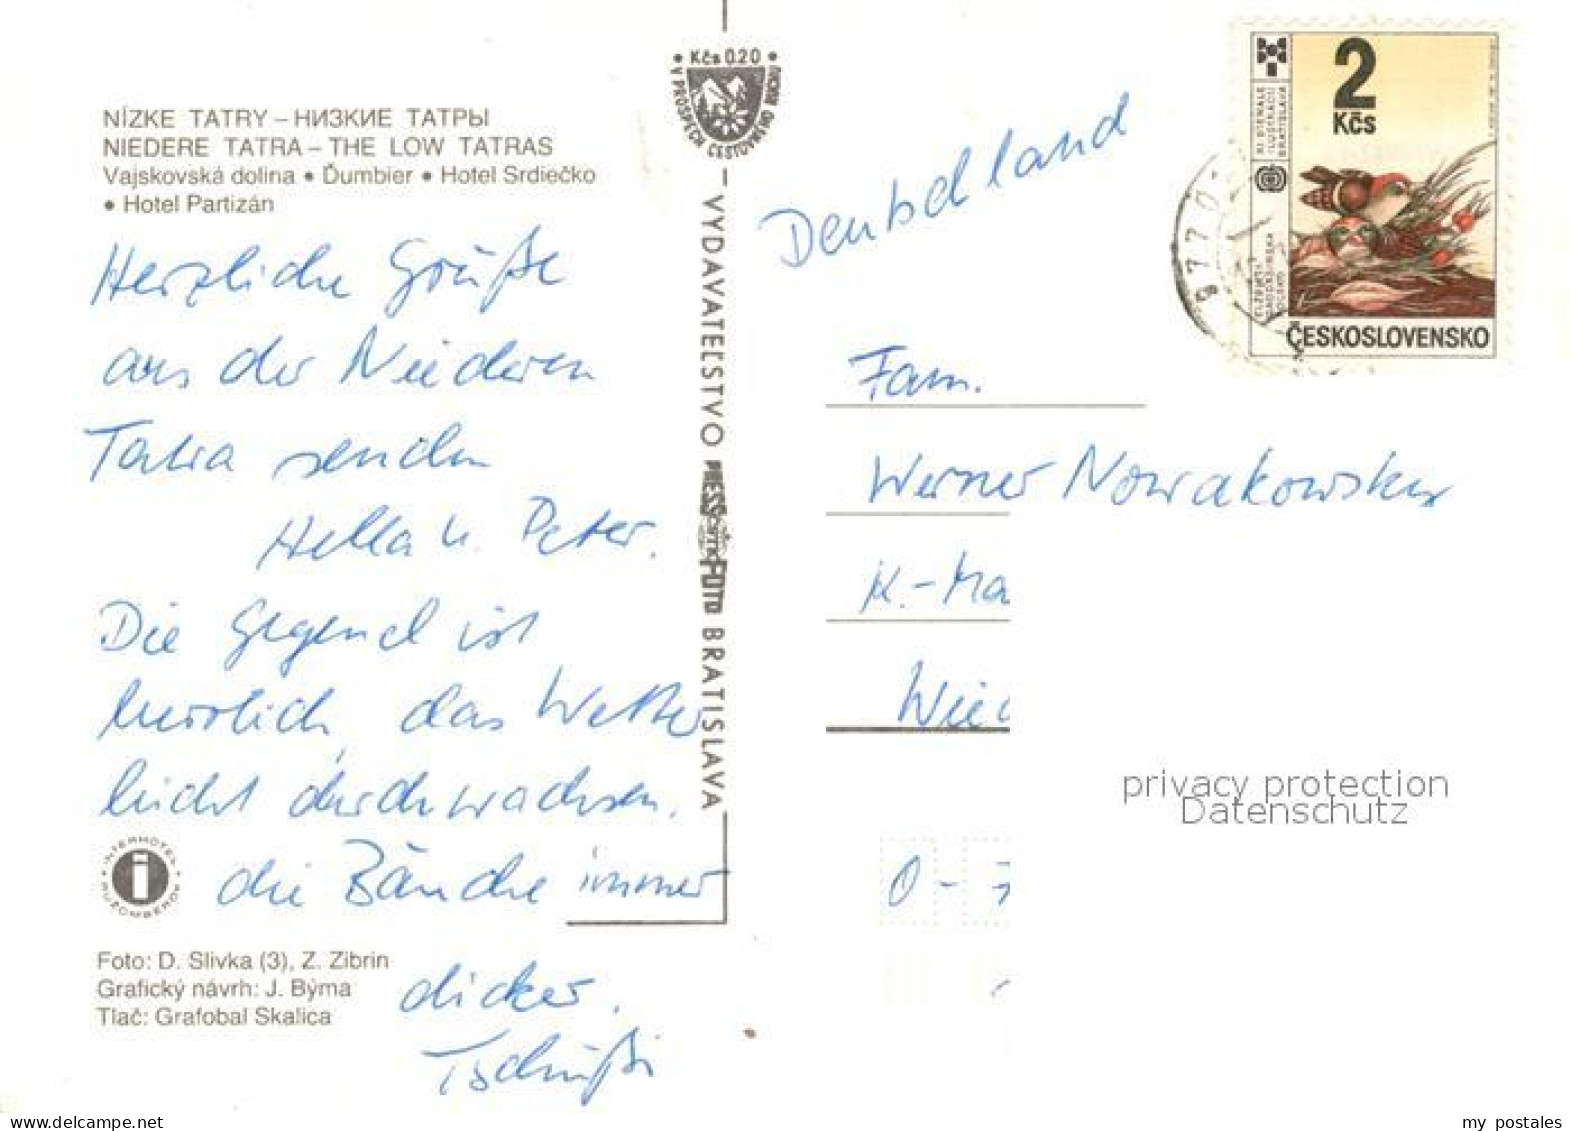 NÍZKE TATRY – НИЗКИЕ ТАТРЫ
NIEDERE TATRA – THE LOW TATRAS
Vajskovská dolina • Ďumbier • Hotel Srdiečko
• Hotel Partizán
Herzliche Grüße
aus der Niederen
Tatra senden
Hella u. Peter.
Die Gegend ist
herrlich, das Wetter
leicht durchwachsen,
die Bäuche immer
dicker.
Tschüßi
INTERHOTEL
RUŽOMBEROK
i
Foto: D. Slivka (3), Z. Zibrin
Grafický návrh: J. Býma
Tlač: Grafobal Skalica
• Kčs 0,20 •
V PROSPECH CESTOVNÉHO RUCHU
VYDAVATEĽSTVO PRESSFOTO BRATISLAVA
Deutschland
2
Kčs
XI. BIENÁLE
ILUSTRÁCIÍ
BRATISLAVA
ČESKOSLOVENSKO
977 0
Fam.
Werner Nowakowsky
K.-Ma
Wie
O - 7
privacy protection
Datenschutz
my postales